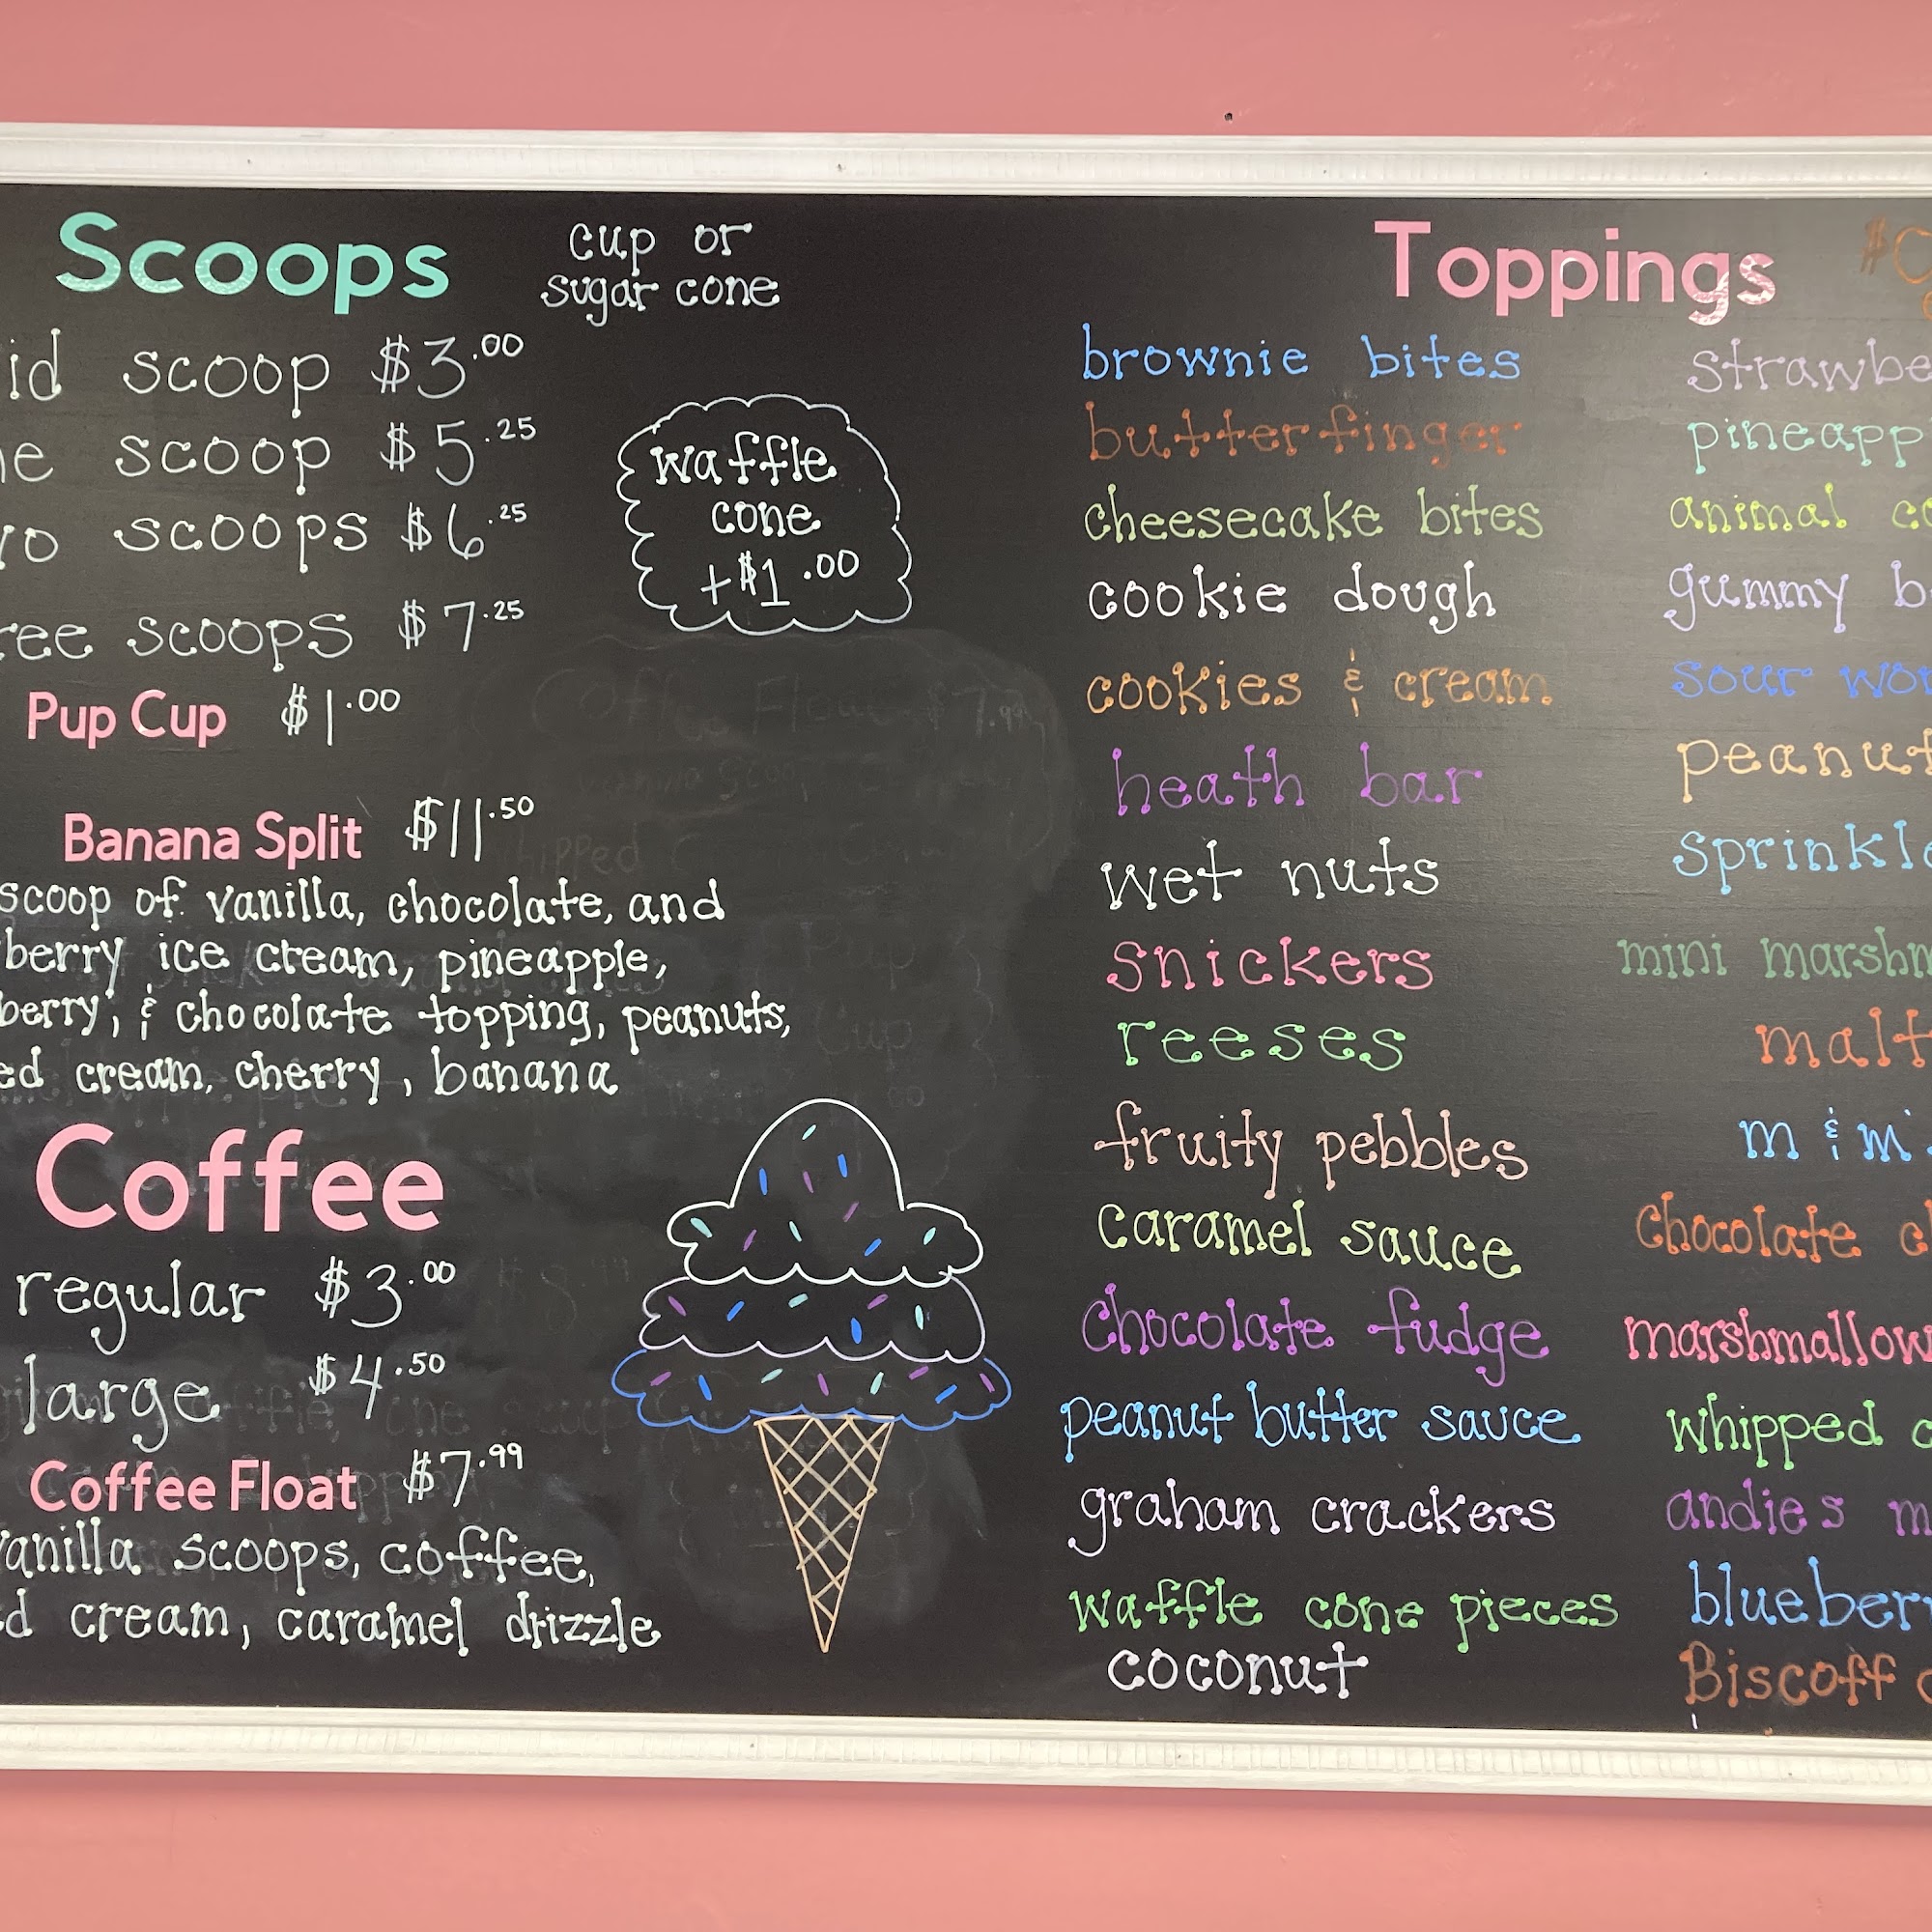 Scoops
cup or
sugar cone
id scoop $3.00
ne scoop $5.25
vo scoops $6.25
ree scoops $7.25
waffle
cone
+$1.00
Pup Cup $1.00
Banana Split $11.50
scoop of vanilla, chocolate, and
berry ice cream, pineapple,
berry, & chocolate topping, peanuts,
ed cream, cherry, banana
Coffee
regular $3.00
large $4.50
Coffee Float $7.99
vanilla scoops, coffee,
d cream, caramel drizzle
Toppings
brownie bites
butterfinger
cheesecake bites
cookie dough
cookies & cream
heath bar
wet nuts
snickers
reeses
fruity pebbles
caramel sauce
chocolate fudge
peanut butter sauce
graham crackers
waffle cone pieces
coconut
strawbe
pineapp
animal
gummy b
sour wor
peanut
sprinkle
mini marshm
malt
m & m
chocolate c
marshmallow
whipped c
andies m
blueberr
Biscoff